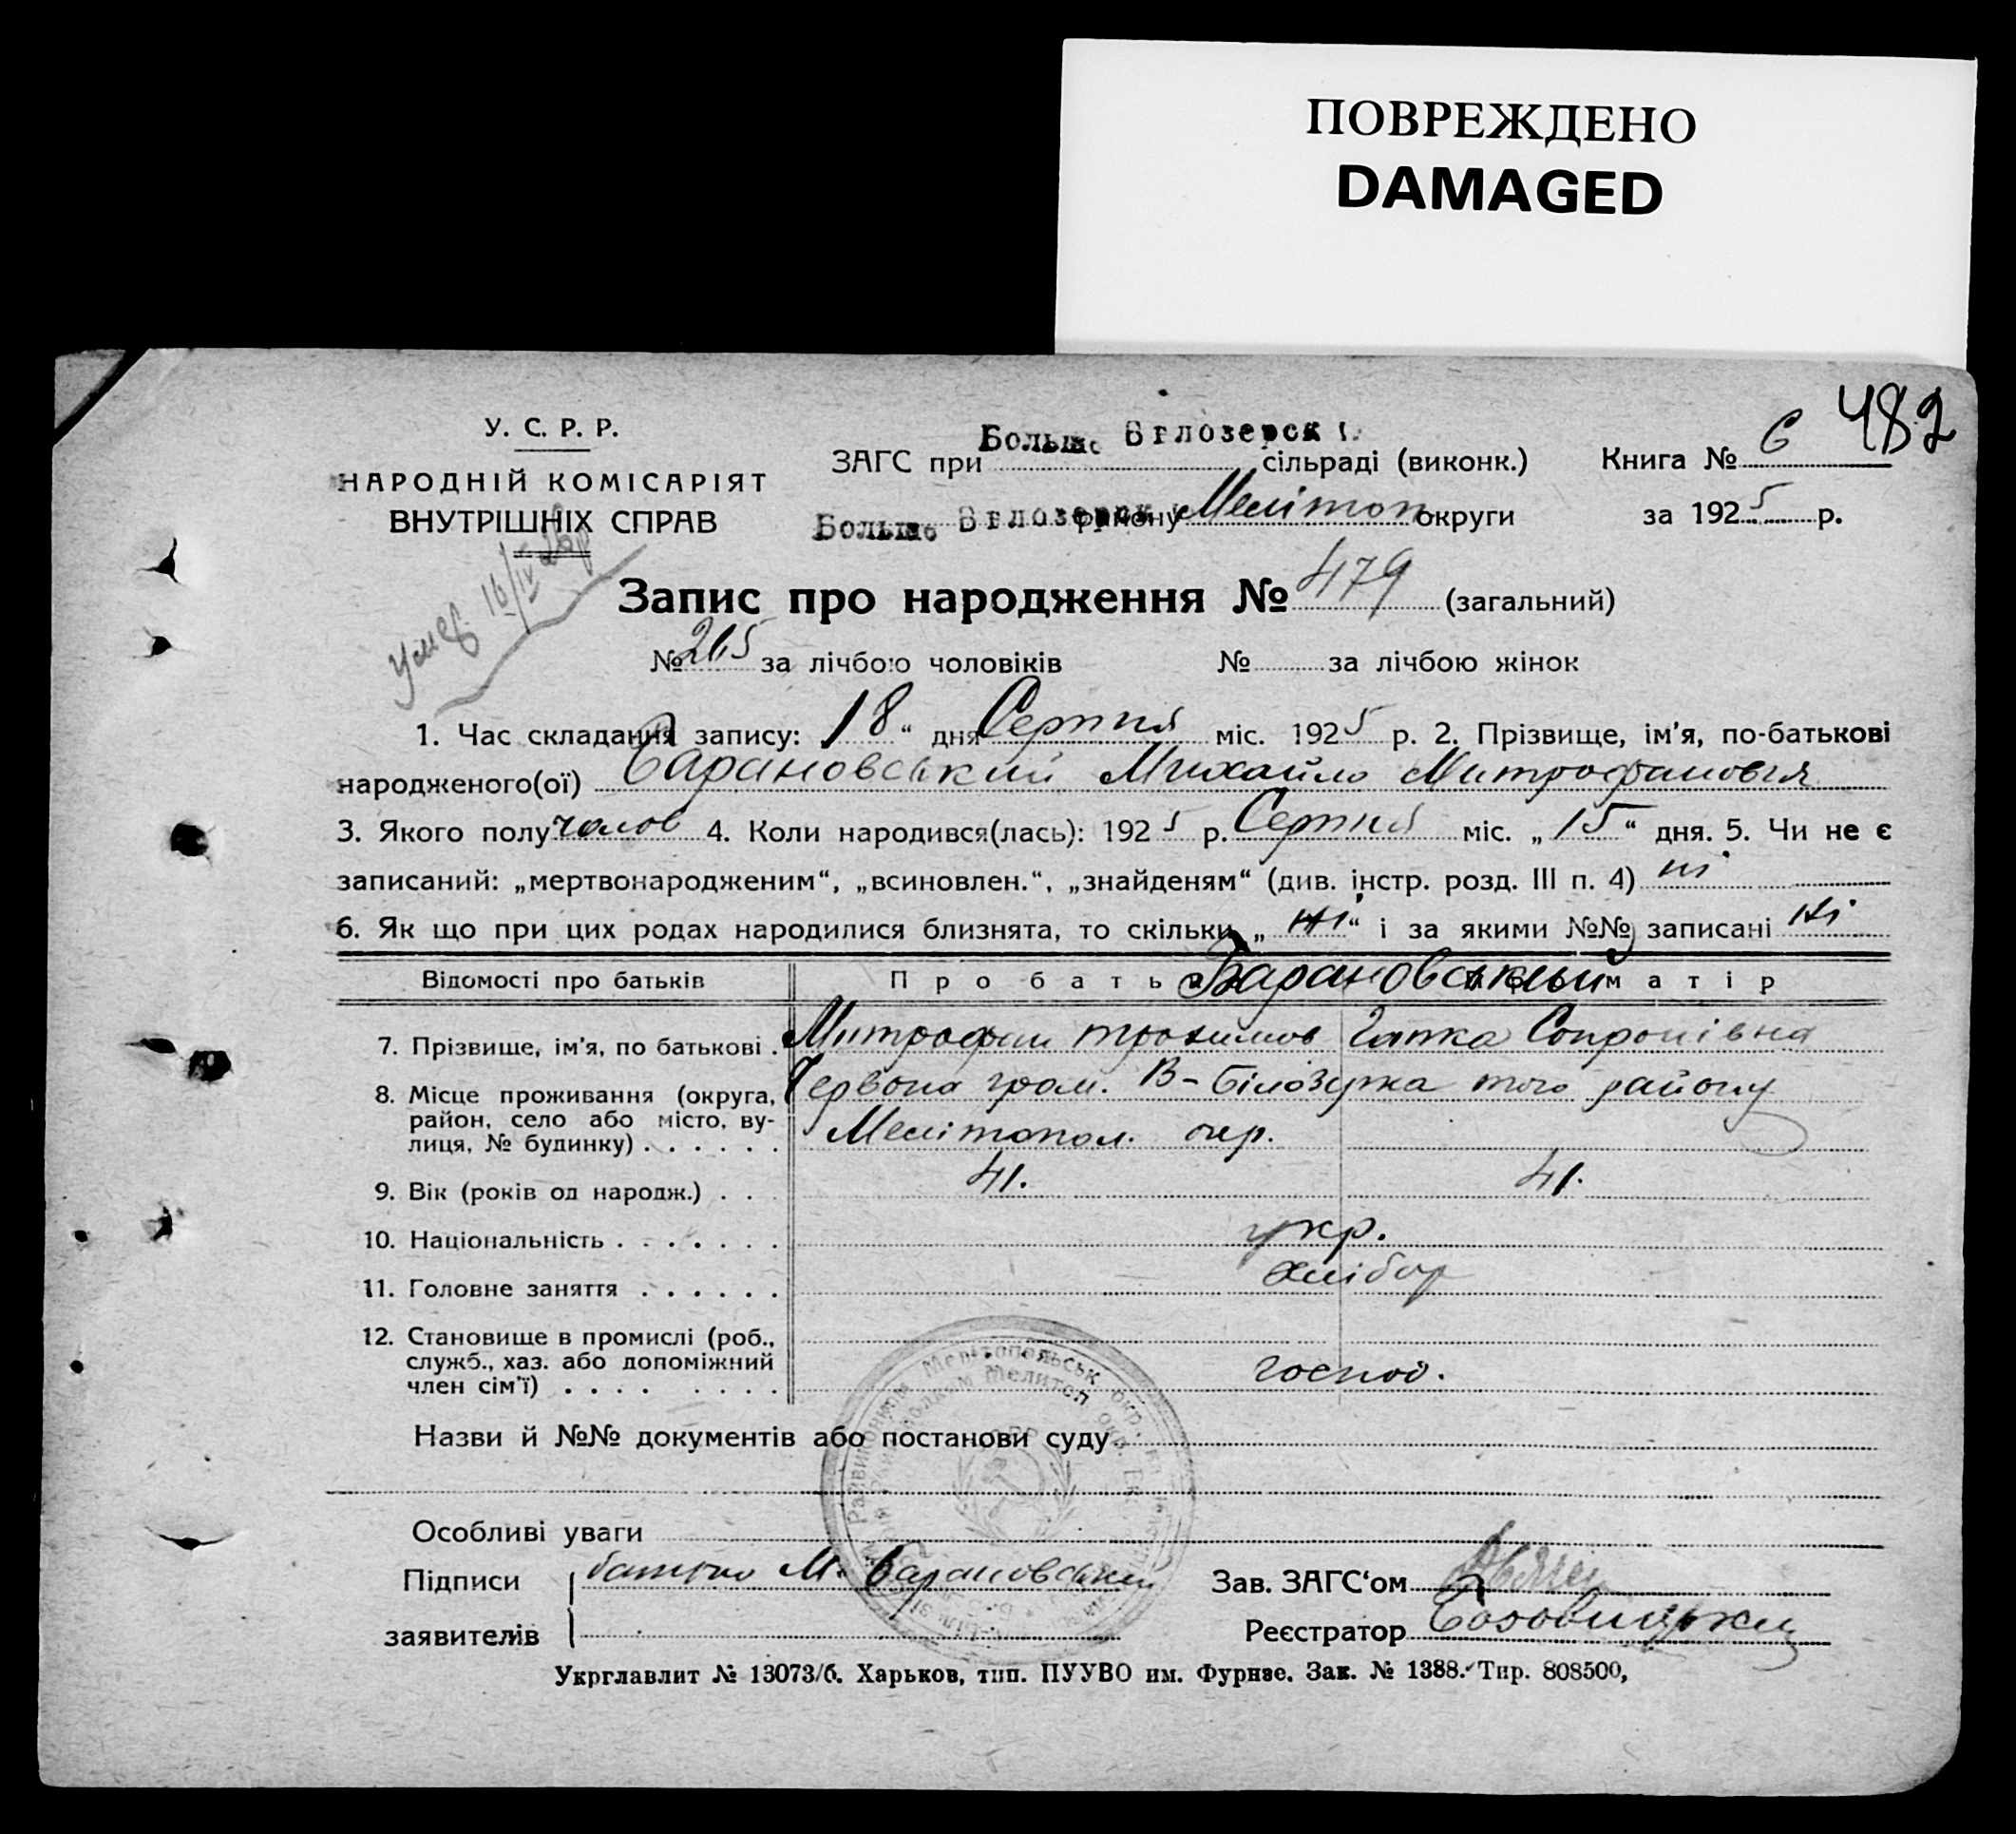 ПОВРЕЖДЕНО
DAMAGED
482
У. С. Р. Р.
НАРОДНІЙ КОМІСАРІЯТ
ВНУТРІШНІХ СПРАВ
ЗАГС при Больше Білозерск сільраді (виконк.) Книга № 6
Больше Білозерск району Меліто​п округи за 1925 р.
16/IV 26р
Запис про народження № 479 (загальний)
№ 265 за лічбою чоловіків № за лічбою жінок
1. Час складання запису: 18 “ дня Серпня міс. 1925 р. 2. Прізвище, ім'я, по-батькові
народженого(ої) Барановський Михайло Митрофанович
3. Якого полу чолов 4. Коли народився(лась): 1925 р. Серпня міс. „ 15 “ дня. 5. Чи не є
записаний: „мертвонародженим“, „всиновлен.“, „знайденям“ (див. інстр. розд. III п. 4) ні
6. Як що при цих родах народилися близнята, то скільки „ ні “ і за якими №№ записані ні
Відомості про батьків Про батька Барановський матір
7. Прізвище, ім'я, по батькові . Митрофан Трохимов Гапка Сопронівна
8. Місце проживання (округа, Червона гром. В-Білозірка того району
район, село або місто, ву-
лиця, № будинку) . . . . . . Мелітопол. окр.
9. Вік (років од народж.) . . . 41. 41.
10. Національність . . . . . . . укр.
11. Головне заняття . . . . . . хлібор
12. Становище в промислі (роб.,
служб., хаз. або допоміжний
член сім'ї) . . . . . . . . . господ.
Назви й №№ документів або постанови суду
Особливі уваги
Підписи батько М. Барановський Зав. ЗАГС‘ом
заявителів Реєстратор
Укрглавлит № 13073/б. Харьков, тип. ПУУВО им. Фурнзе. Зак. № 1388. Тир. 808500,